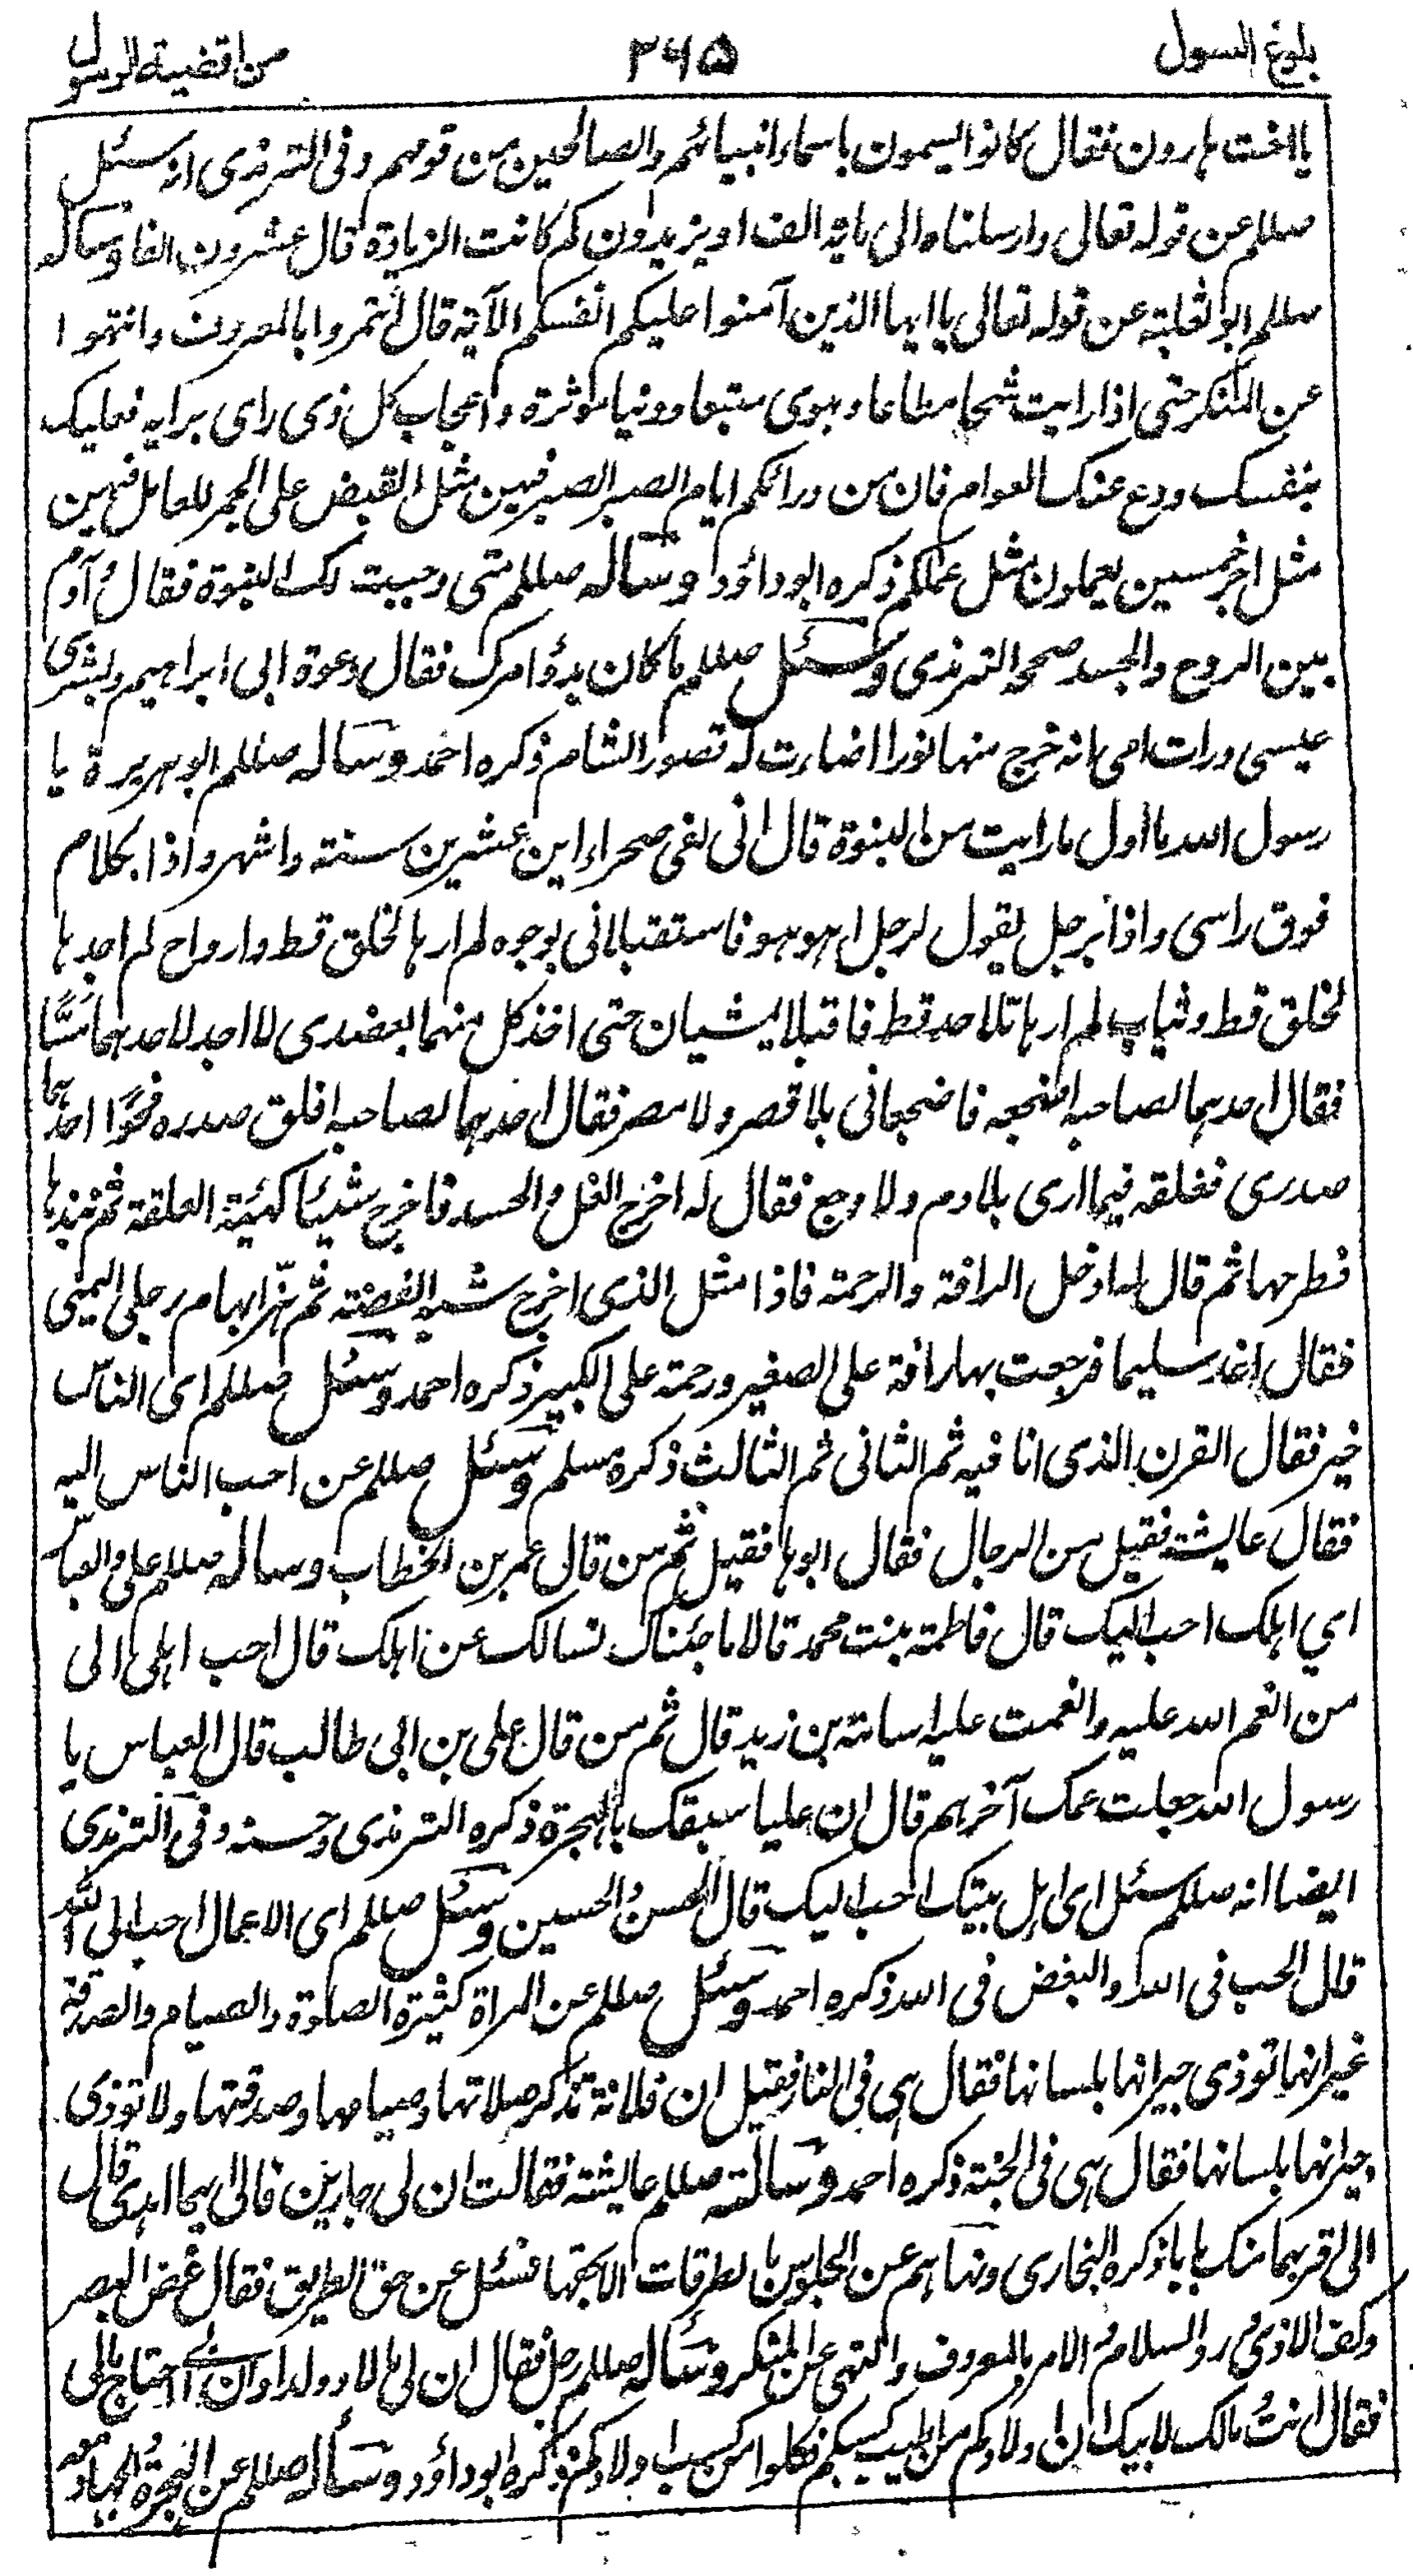 بلوغ السول ٢٦٥ من اقضية الرسول
يا اخت هارون فقال كانوا يسمون باسماء انبيائهم والصالحين من قومهم وفى الترمذى انه سئل
صللم عن قوله تعالى وارسلناه الى مائة الف او يزيدون كم كانت الزيادة قال عشرون الفا وساله
صللم ابو ثعلبة عن قوله تعالى يا ايها الذين آمنوا عليكم انفسكم الآية قال ائتمروا بالمعروف وانتهوا
عن المنكر حتى اذا رايت شحا مطاعا وهوى متبعا ودنيا موثرة واعجاب كل ذى راى برايه فعليك
بنفسك ودع عنك العوام فان من ورائكم ايام الصبر الصبر فيهن مثل القبض على الجمر للعامل فيهن
مثل اجر خمسين يعملون مثل عملكم ذكره ابو داؤد وساله صللم متى وجبت لك النبوة فقال وآدم
بين الروح والجسد صححه الترمذى وسئل صللم ما كان بدؤ امرك فقال دعوة ابى ابراهيم وبشرى
عيسى ورات امى انه خرج منها نورا اضاءت له قصور الشام ذكره احمد وساله صللم ابو هريرة يا
رسول الله ما اول ما رايت من النبوة قال انى لفى صحراء ابن عشرين سنة واشهر واذا بكلام
فوق راسى واذا برجل يقول لرجل اهو هو فاستقبلانى بوجوه لم ارها لخلق قط وارواح لم اجدها
لخلق قط وثياب لم ارها على احد قط فاقبلا يمشيان حتى اخذ كل منهما بعضدى لا اجد لاحدهما مسّا
فقال احدهما لصاحبه اضجعه فاضجعانى بلا قصر ولا هصر فقال احدهما لصاحبه افلق صدره فحوّا احدهما
صدرى ففلقه فيما ارى بلا دم ولا وجع فقال له اخرج الغل والحسد فاخرج شيئا كهيئة العلقة ثم نبذها
فطرحها ثم قال له ادخل الرافة والرحمة فاذا مثل الذى اخرج شبه الفضة ثم هزّ ابهام رجلى اليمنى
فقال اغد سليما فرجعت بها رافة على الصغير ورحمة على الكبير ذكره احمد وسئل صللم اى الناس
خير فقال القرن الذى انا فيه ثم الثانى ثم الثالث ذكره مسلم وسئل صللم عن احب الناس اليه
فقال عايشة فقيل من الرجال فقال ابوها فقيل ثم من قال عمر بن الخطاب وساله صللم على والعباس
اي اهلك احب اليك قال فاطمة بنت محمد قالا ما جئناك نسالك عن اهلك قال احب اهلى الى
من انعم الله عليه وانعمت عليه اسامة بن زيد قال ثم من قال على بن ابى طالب قال العباس يا
رسول الله جعلت عمك آخرهم قال ان عليا سبقك بالهجرة ذكره الترمذى وحسنه وفى الترمذى
ايضا انه صللم سئل اى اهل بيتك احب اليك قال الحسن والحسين وسئل صللم اى الاعمال احب الى الله
قال الحب فى الله والبغض فى الله ذكره احمد وسئل صللم عن المراة كثيرة الصلوة والصيام والصدقة
غير انها توذى جيرانها بلسانها فقال هى فى النار فقيل ان فلانة تذكر صلاتها وصيامها وصدقتها ولا توذى
جيرانها بلسانها فقال هى فى الجنة ذكره احمد وسالته صللم عايشة فقالت ان لى جارين فالى ايهما اهدى قال
الى اقربهما منك بابا ذكره البخارى ونهاهم عن الجلوس بالطرقات الا بحقها فسئل عن حق الطريق فقال غض البصر
وكف الاذى ورد السلام والامر بالمعروف والنهى عن المنكر وساله صللم رجل فقال ان لى مالا وولدا وان ابى احتاج مالى
فقال انت ومالك لابيك ان اولادكم من اطيب كسبكم فكلوا من كسب اولادكم ذكره ابو داؤد وساله صللم عن الهجرة والجهاد معه